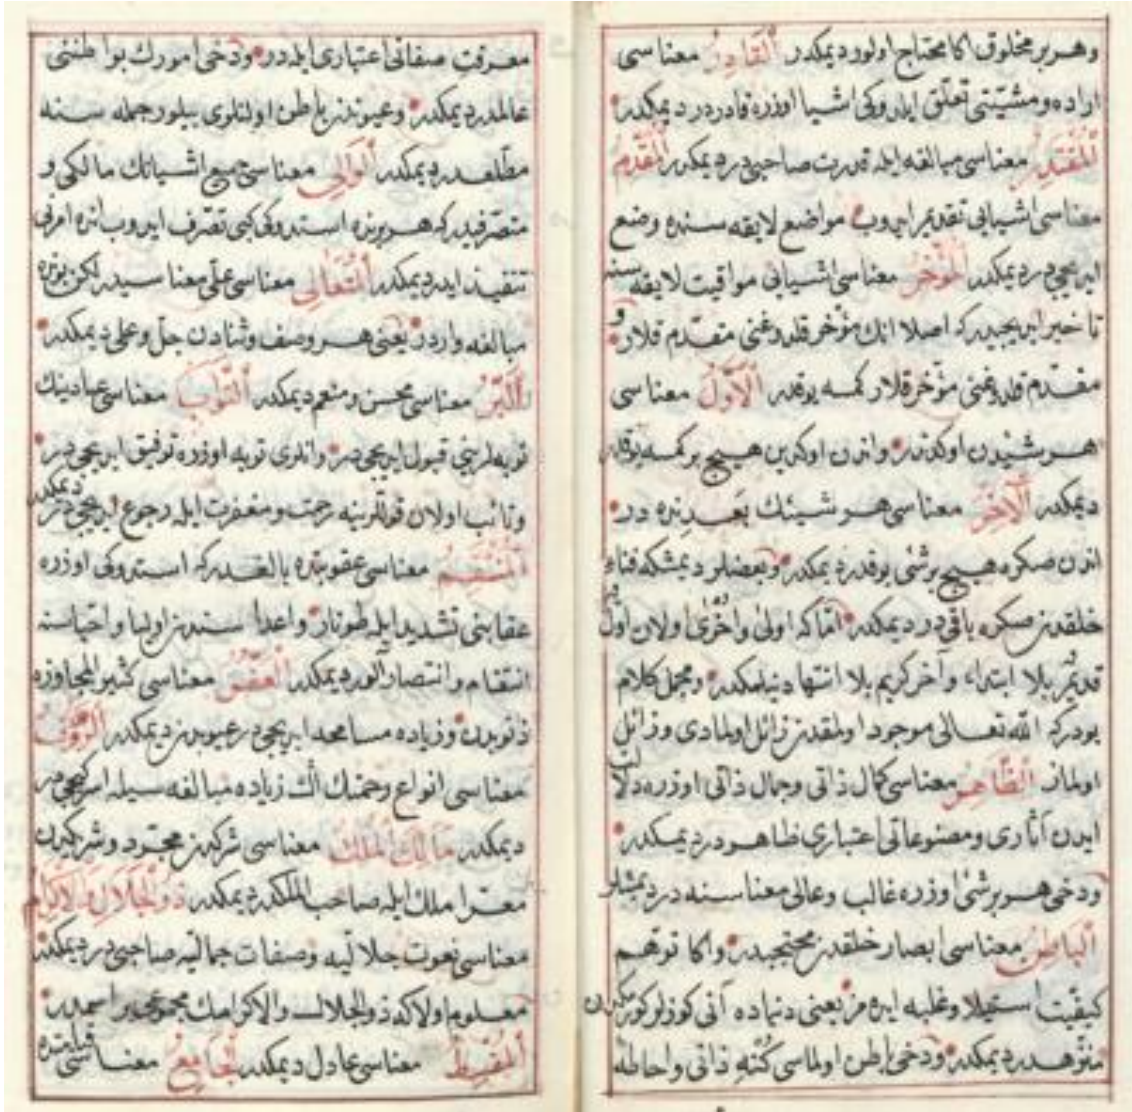 وهر بر مخلوق اكا محتاج اولور ديمكدر اَلْقَادِرُ معناسى
اراده ومشيّتى تعلّق ايلدوكى اشيا اوزره قادر در ديمكدر
اَلْمُقْتَدِرُ معناسى مبالغه ايله قدرت صاحبى در ديمكدر اَلْمُقَدِّمُ
معناسى اشيايى تقديم ايدوب مواضع لايقه سنده وضع
ايديجى در ديمكدر اَلْمُؤَخِّرُ معناسى اشيايى مواقيت لايقه سنه
تاخير ايديجيدر كه اصلا انك مؤخر قلدوغنى متقدم قلار و
مقدّم قلدوغنى مؤخر قلار كمسه يوقدر اَلْاَوَّلُ معناسى
هر شيئدن اوكدندر واندن اوكدين هيچ بر كمسه يوقدر
ديمكدر اَلْآخِرُ معناسى هر شيئك بعدنده در
اندن صكره هيچ بر شئ يوقدر ديمكدر وبعضلر ديمشكه فناء
خلقدن صكره باقى در ديمكدر امّا كه اولى واخرى اولان اوّل
قديم بلا ابتداء وآخر كريم بلا انتها دنيلمكدر ومجمل كلام
بودر كه الله تعالى موجود اولمقدن زائل اولمادى وزائل
اولماز اَلظَّاهِرُ معناسى كمال ذاتى وجمال ذاتى اوزره دلالت
ايدن آثارى ومصنوعاتى اعتبارى ظاهر در ديمكدر
ودخى هر بر شئ اوزره غالب وعالى معناسنه در ديمشلر
اَلْبَاطِنُ معناسى ابصار خلقدن محتجبدر واكا توهم
كيفيّت استيلا وغلبه ايده مز يعنى دنياده آنى كوزلر كورمكدن
منزّهدر ديمكدر ودخى باطن اولماسى كُنْهِ ذاتى واحاطهٔ
معرفت صفاتى اعتبارى ايله در ودخى امورك بواطننى
عالمدر ديمكدر وعيوندن باطن اولنلرى بيلور جمله سنه
مطّلعدر ديمكدر اَلْوَالِى معناسى جميع اشيانك مالكى و
متصرفيدر كه هر برنده استدوكى كبى تصرف ايدوب انده امرنى
تنفيذ ايدر ديمكدر اَلْمُتَعَالِى معناسى على معناسيدر لكن بونده
مبالغه واردر يعنى هر وصف وثنادن جلّ وعلى ديمكدر
اَلْبَرُّ معناسى محسن ومنعم ديمكدر اَلتَّوَّابُ معناسى عبادينك
توبه لرينى قبول ايديجى در وانلرى توبه اوزره توفيق ايديجى در
وتائب اولان قوللرينه رحمت ومغفرت ايله رجوع ايديجى در ديمكدر
اَلْمُنْتَقِمُ معناسى عقوبتده بالغدر كه استدوكى اوزره
عقابنى تشديد ايله طوتار واعدا سندن اوليا واحباسنه
انتقام وانتصار آلور ديمكدر اَلْعَفُوُّ معناسى كثير المجاوزه
ذنوبدن وزياده مسامحه ايديجى در عيوبدن ديمكدر اَلرَّؤُفُ
معناسى انواع رحمتك الك زياده مبالغه سيله اسركيجى در
ديمكدر مَالِكُ الْمُلْكِ معناسى شركدن مجرّد وشركدن
معرّا ملك ايله صاحب الملكدر ديمكدر ذُو الْجَلَالِ وَالْاِكْرَامِ
معناسى نعوت جلاليه وصفات جماليه صاحبى در ديمكدر
معلوم اولاكه ذو الجلال والاكرامك مجموعى بر اسمدر
اَلْمُقْسِطُ معناسى عادل ديمكدر اَلْجَامِعُ معناسى قيامتده